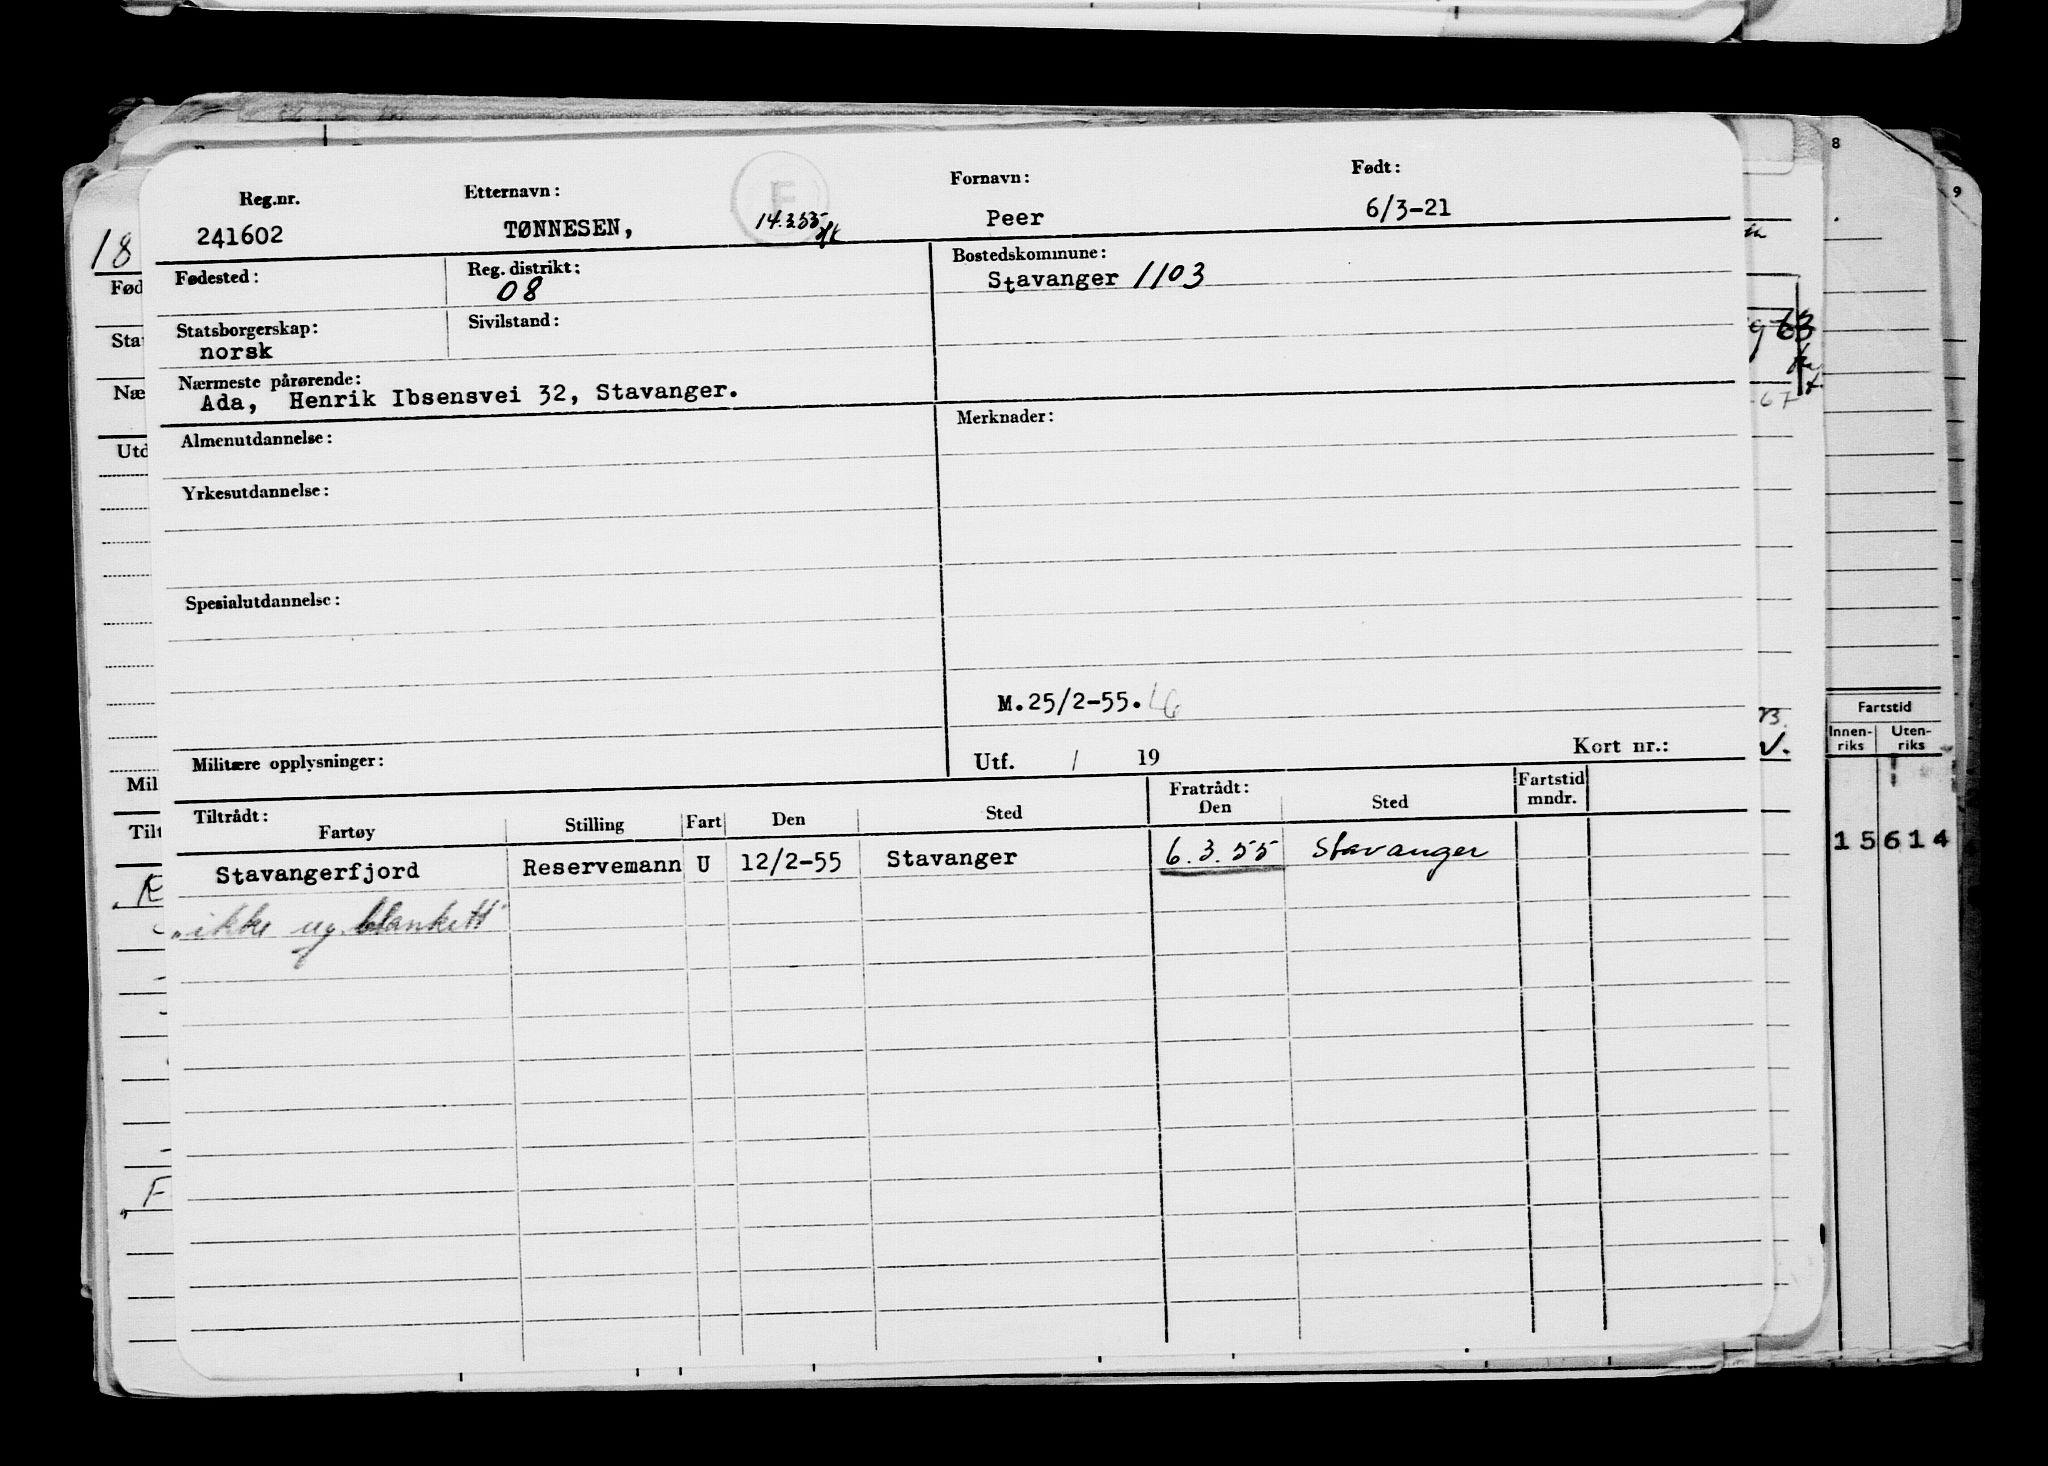 Reg.nr. Etternavn: F Fornavn: Født:
241602 TØNNESEN, Peer 6/3-21
Fødested: Reg. distrikt: Bostedskommune:
08 Stavanger 1103
Statsborgerskap: Sivilstand:
norsk
Nærmeste pårørende:
Ada, Henrik Ibsensvei 32, Stavanger.
Almenutdannelse: Merknader:
Yrkesutdannelse:
Spesialutdannelse:
M.25/2-55.
Militære opplysninger: Utf. / 19 Kort nr.:
Tiltrådt: Fratrådt: Fartstid
Fartøy Stilling Fart Den Sted Den Sted mndr.
Stavangerfjord Reservemann U 12/2-55 Stavanger 6.3.55 Stavanger
"ikke ug. blankett"
18
Fød
Sta
Næ
Utd
Mil
Tilt
8
9
63
67
Fartstid
Innen- Uten-
riks riks
15 614